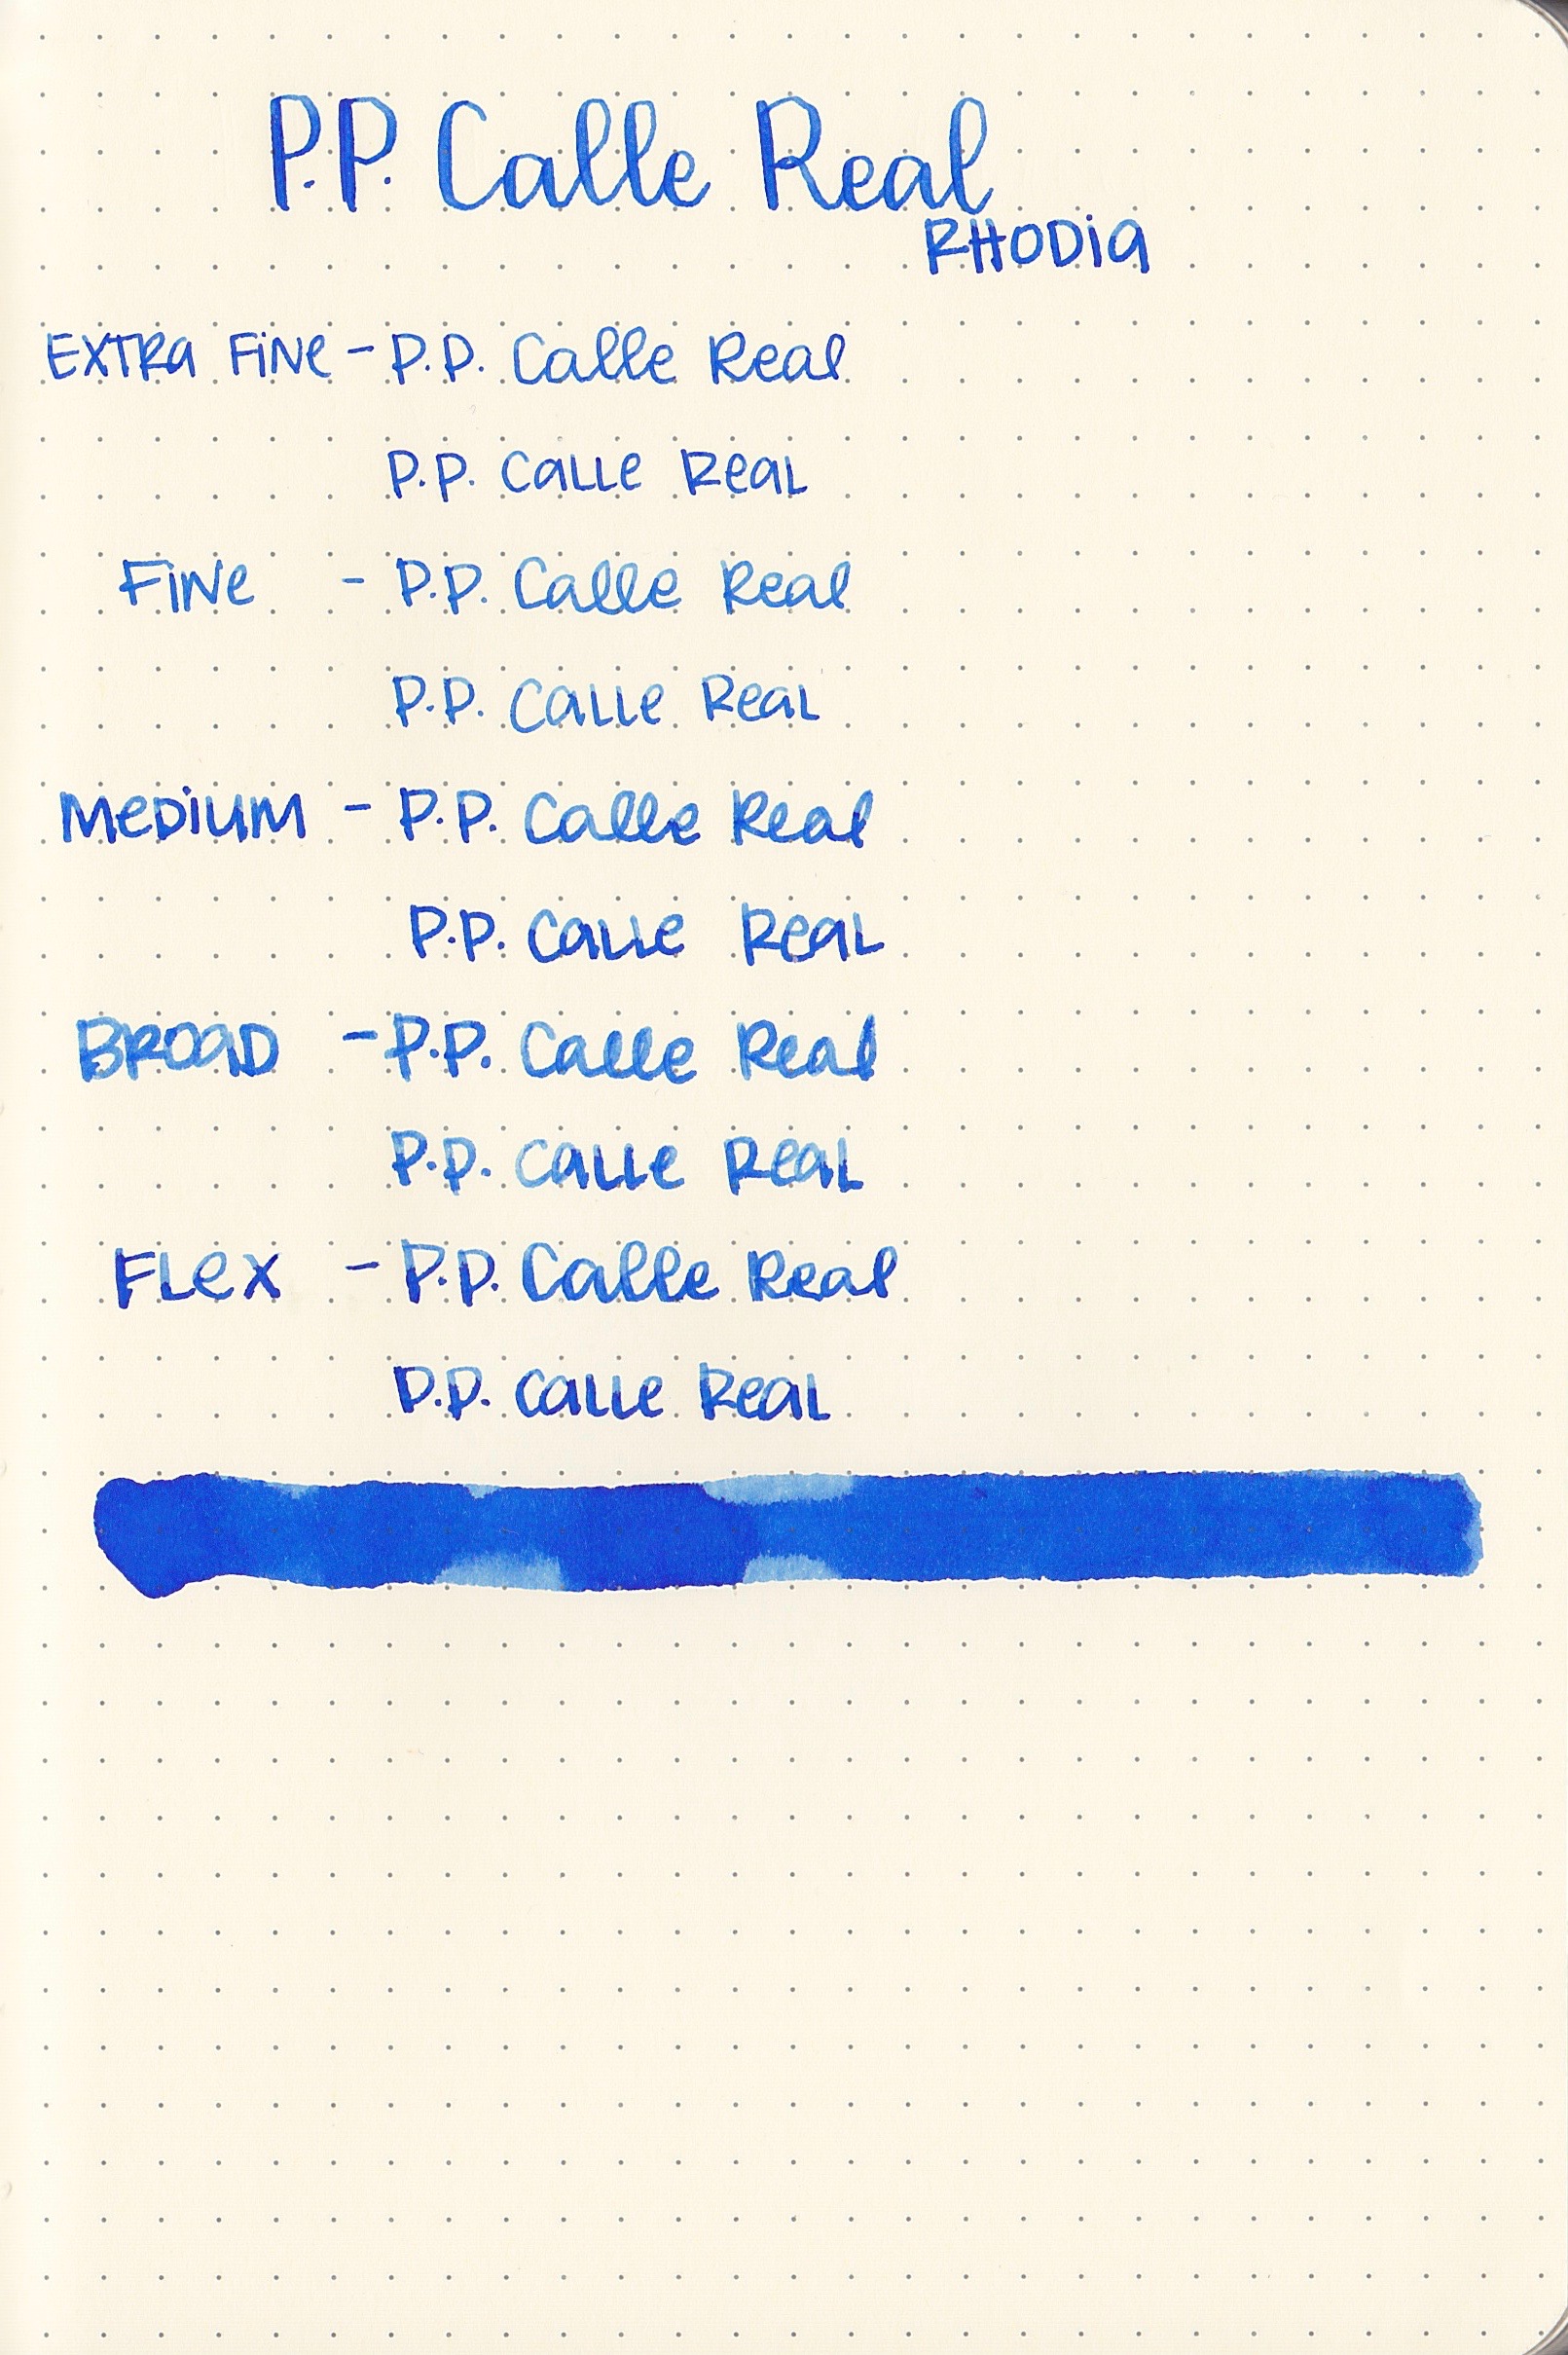 P.P. Calle Real
RHODia
EXTRa FiNe - P.P. Calle Real
P.P. CaLLe ReaL
FiNe - P.P. Calle Real
P.P. CaLLe ReaL
MeDiUM - P.P. Calle Real
P.P. CaLLe ReaL
BROaD - P.P. Calle Real
P.P. CaLLe ReaL
FLeX - P.P. Calle Real
P.P. CaLLe ReaL